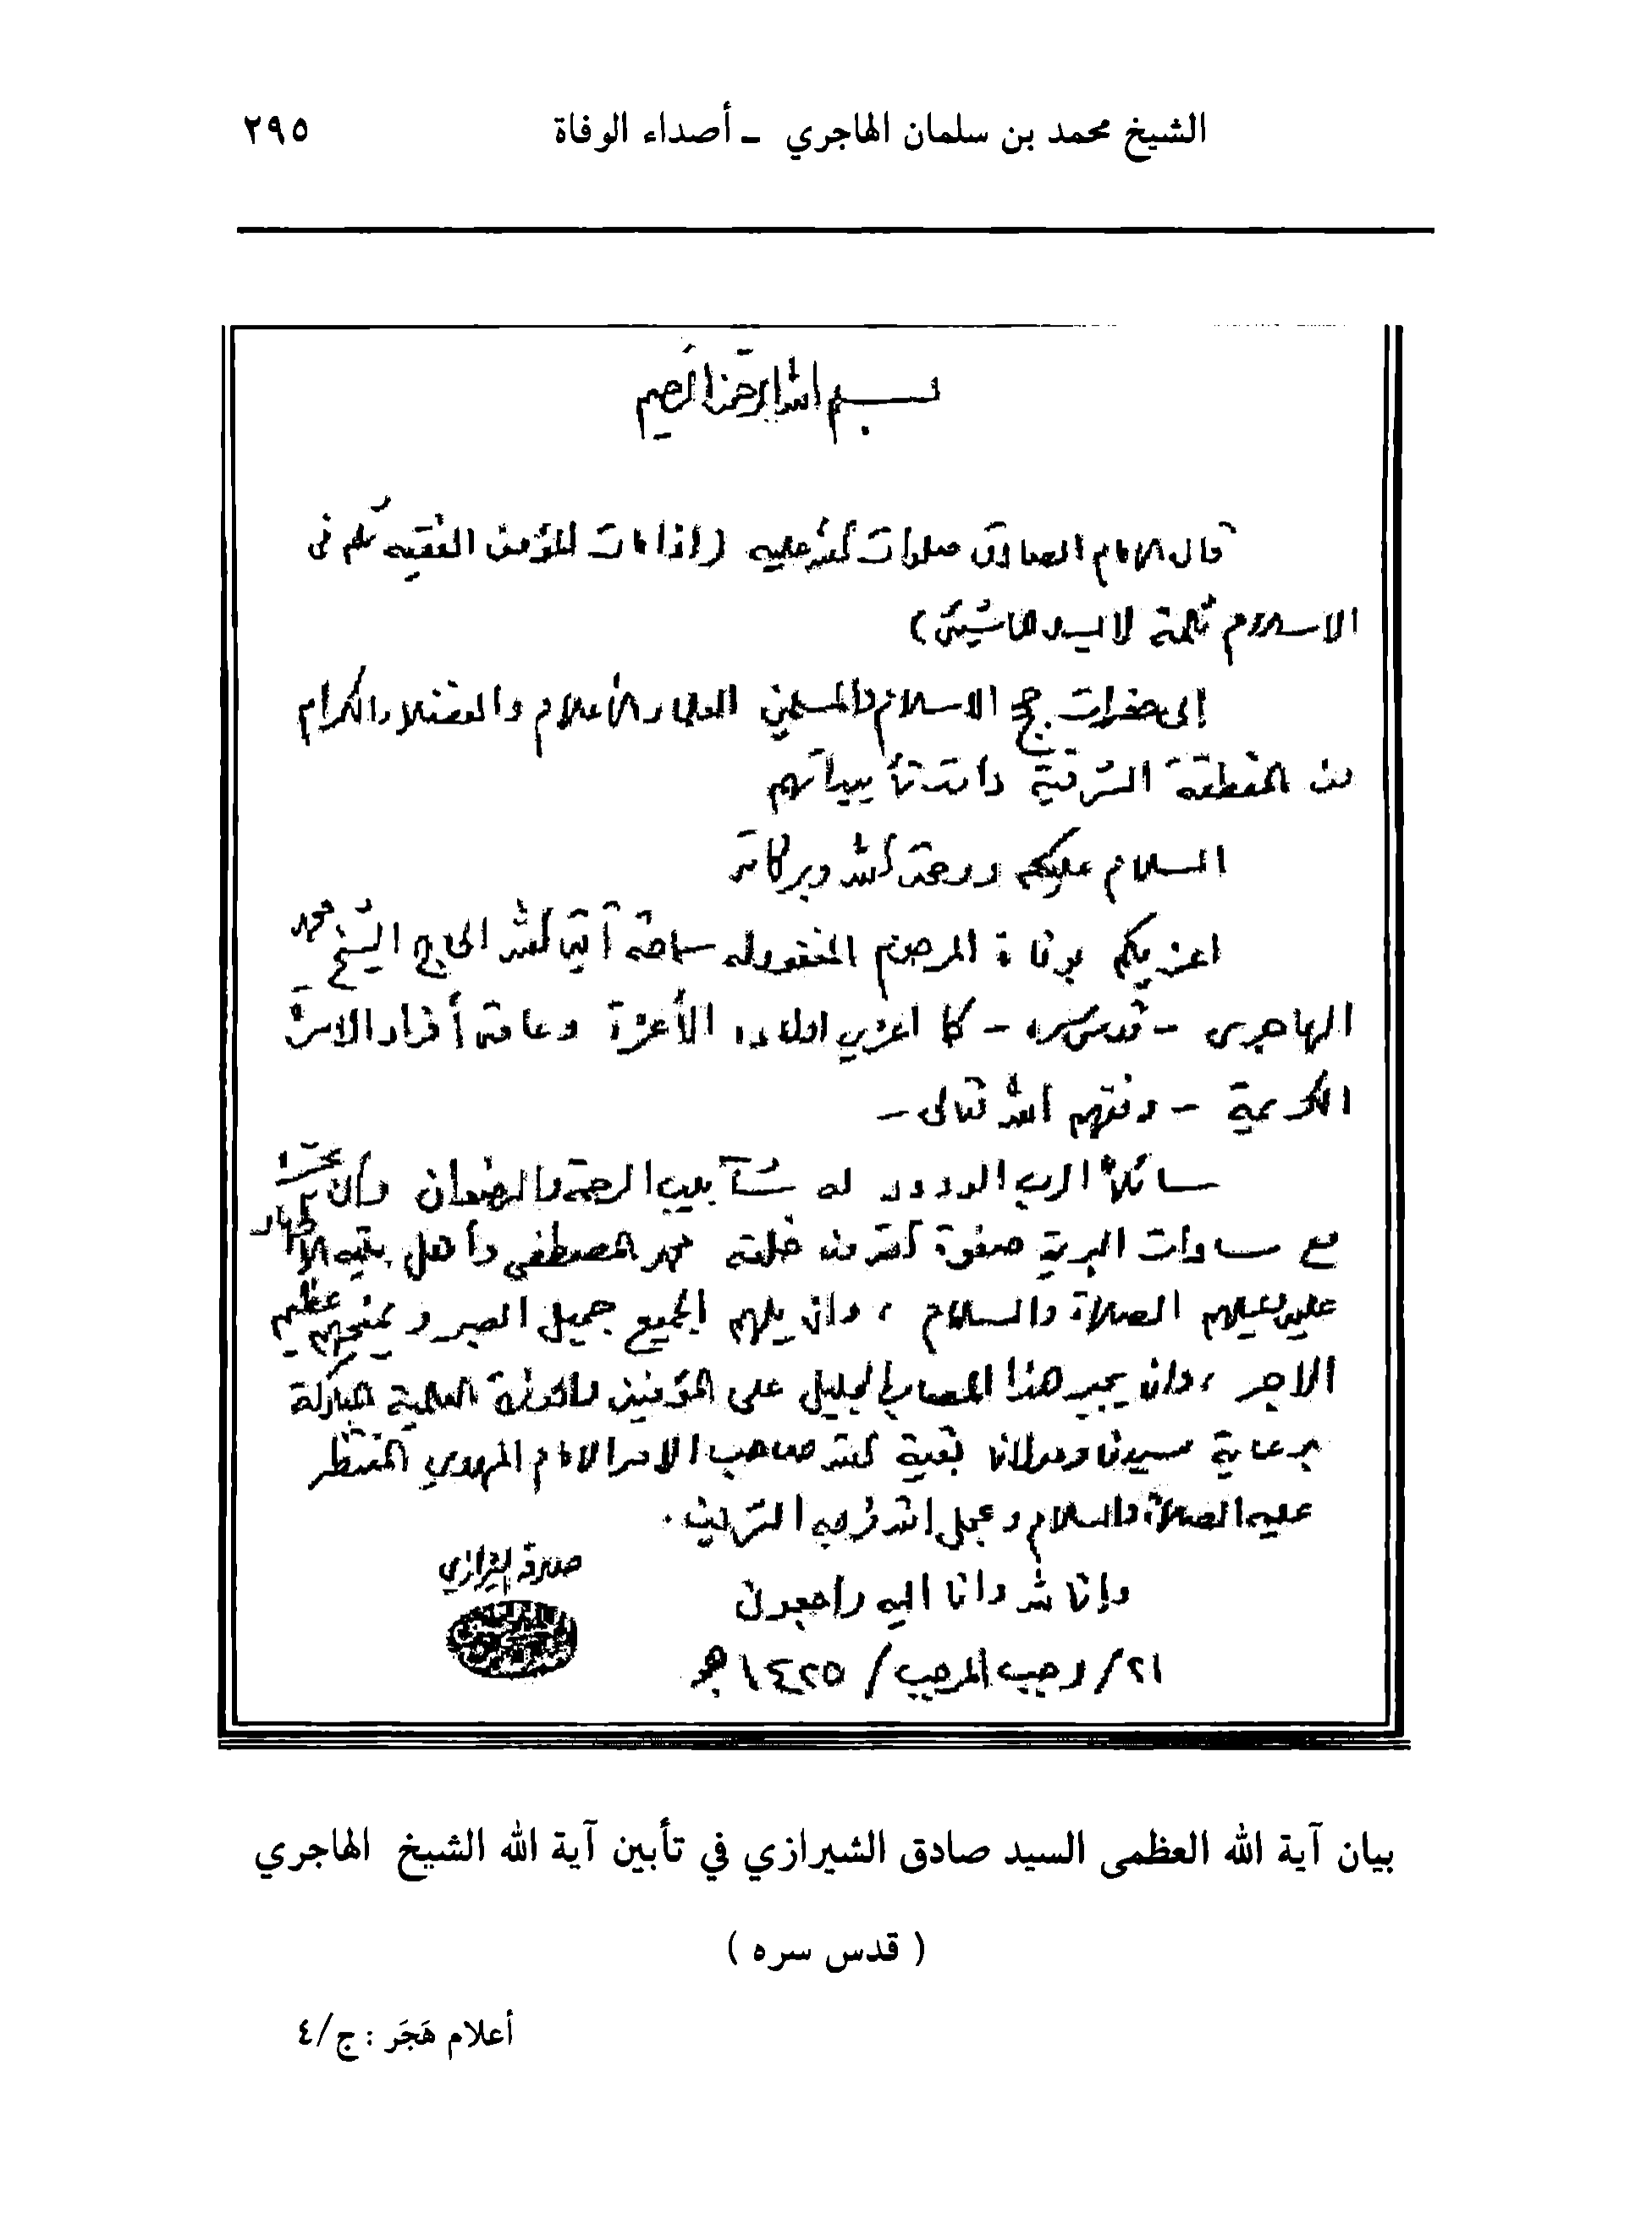 الشيخ محمد بن سلمان الهاجري - أصداء الوفاة ٢٩٥
بسم الله الرحمن الرحيم
قال الامام الصادق صلوات الله عليه (إذا مات المؤمن الفقيه ثلم في
الاسلام ثلمة لا يسدها شيء)
إلى حضرات حجج الاسلام والمسلمين العلماء الأعلام والفضلاء الكرام
من المنطقة الشرقية دامت تأييداتهم
السلام عليكم ورحمة الله وبركاته
اعزيكم بوفاة المرحوم المغفور له سماحة آية الله الحاج الشيخ محمد
الهاجري - قدس سره - كما اعزي اولاده الأعزة وعامة أفراد الاسرة
الكريمة - وفقهم الله تعالى -
سائلاً الرب الودود له شآبيب الرحمة والرضوان وأن يحشره
مع سادات البرية صفوة الله من خلقه محمد المصطفى وأهل بيته الاطهار
عليه وعليهم الصلاة والسلام ، وان يلهم الجميع جميل الصبر ويمنحهم عظيم
الاجر ، وان يجبر هذا المصاب الجليل على المؤمنين والحوزة العلمية المباركة
برعاية سيدنا ومولانا بقية الله صاحب الامر الامام المهدي المنتظر
عليه الصلاة والسلام وعجل الله فرجه الشريف .
وإنا لله وانا اليه راجعون
صادق الشيرازي
٢١/ رجب المرجب / ١٤٢٥ هـ
بيان آية الله العظمى السيد صادق الشيرازي في تأبين آية الله الشيخ الهاجري
( قدس سره )
أعلام هَجَر : ج/٤